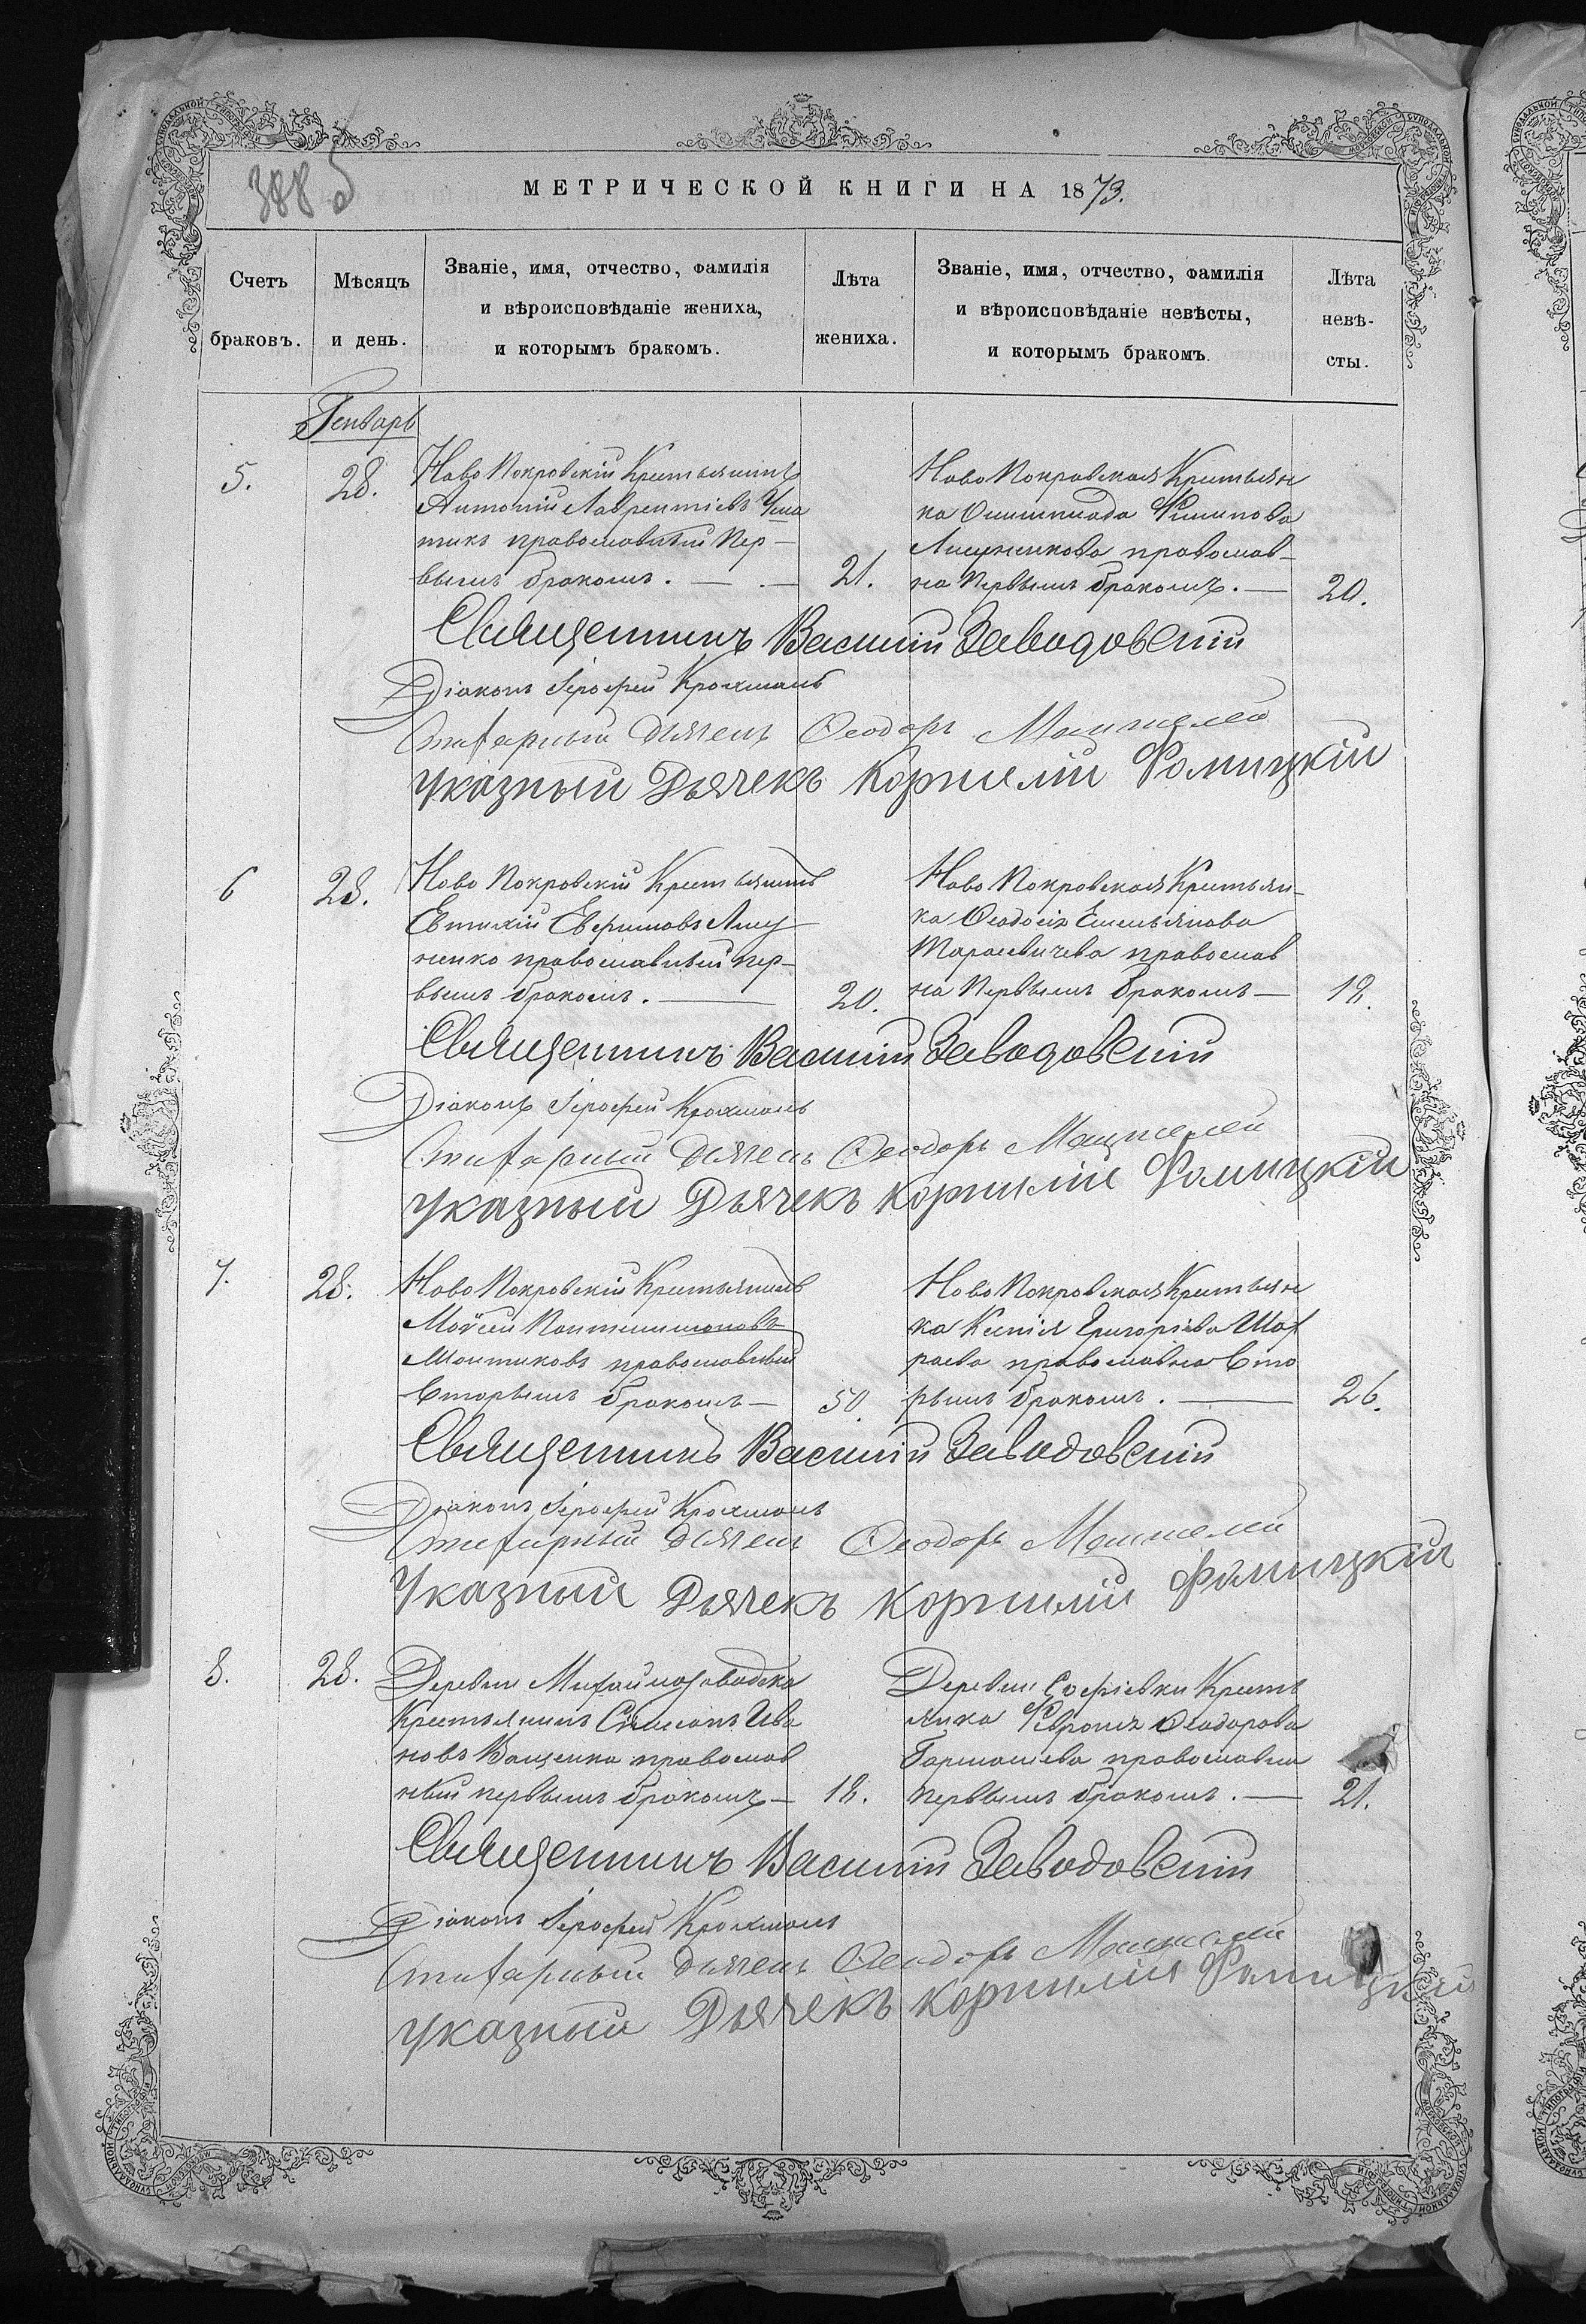 388 б
МЕТРИЧЕСКОЙ КНИГИ НА 1873.
Счетъ браковъ.
Мѣсяцъ и день.
Званіе, имя, отчество, фамилія
и вѣроисповѣданіе жениха,
и которымъ бракомъ.
Лѣта жениха.
Званіе, имя, отчество, фамилія
и вѣроисповѣданіе невѣсты,
и которымъ бракомъ.
Лѣта невѣ-
сты.
Генварь
5.
28.
Ново Покровскій Крестьянинъ
Антоній Лаврентіевъ
православный пер-
вымъ бракомъ.
21.
Ново Покровская Крестьян
ка Олимпіада Филипова
православ-
на первымъ бракомъ.
20.
Священникъ Василій Заводовскій
Діаконъ Іерофей Крохмаль
Стихарный Дьячекъ Ѳеодоръ
Указный Дьячекъ Корнилій Фомицкій
6
28.
Ново Покровскій Крестьянинъ
Евтихій Ефримовъ Лису
ненко православный пер-
вымъ бракомъ.
20.
Ново Покровская Крестьян-
ка Ѳеодосія Емельянова
Тарасевичева православ
на первымъ бракомъ
18.
Священникъ Василій Заводовскій
Діаконъ Іерофей Крохмаль
Стихарный Дьячекъ Ѳеодоръ
Указный Дьячекъ Корнилій Фомицкій
7.
28.
Ново Покровскій Крестьянинъ
Моѵсей Пантелимоновъ
православный
вторымъ бракомъ
50.
Ново Покровская Крестьян
ка Ксенія Григоріева Шаф
раева православна вто
рымъ бракомъ.
26.
Священникъ Василій Заводовскій
Діаконъ Іерофей Крохмаль
Стихарный Дьячекъ Ѳеодоръ
Указный Дьячекъ Корнилій Фомицкій
8.
28.
Деревни Михайлозаводска
Крестьянинъ Симеонъ Ива
новъ Ващенко православ
ный первымъ бракомъ
18.
Деревни Софіевки Кресть
янка Февронія Ѳеодорова
Гармашева православна
первымъ бракомъ.
21.
Священникъ Василій Заводовскій
Діаконъ Іерофей Крохмаль
Стихарный Дьячекъ Ѳеодоръ
Указный Дьячекъ Корнилій Фомицкій